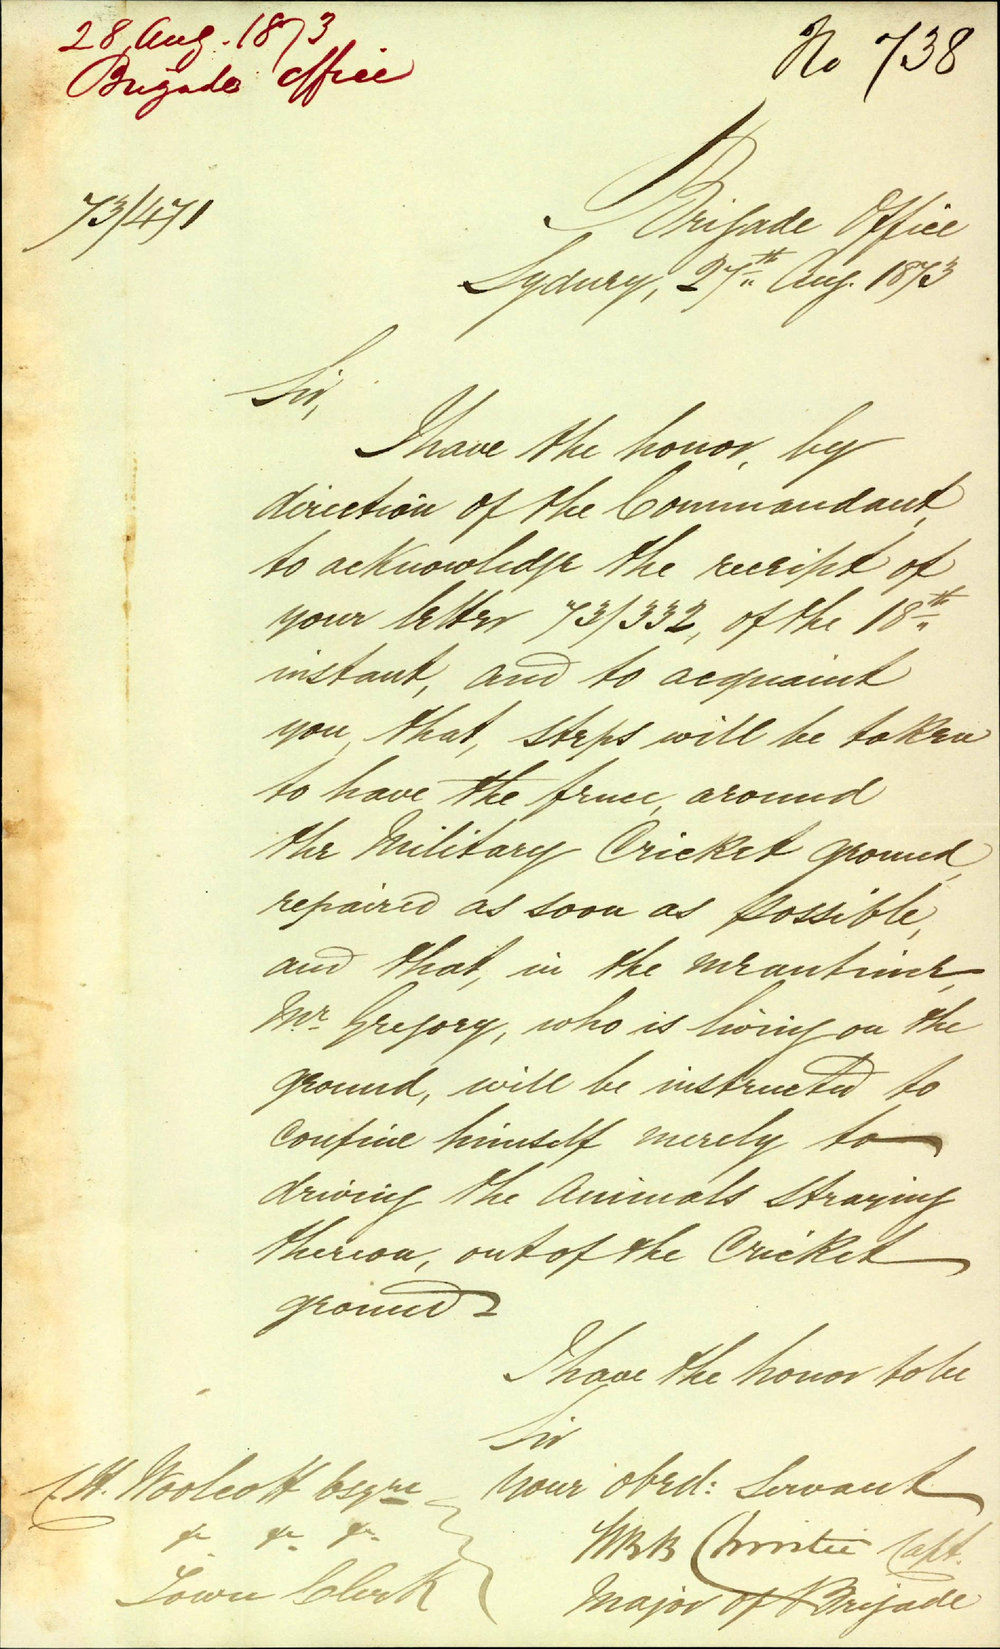 28 Aug. 1873
Brigade Office
No 738
73/471
Brigade Office
Sydney, 27th Aug. 1873
Sir,
I have the honor, by
direction of the Commandant,
to acknowledge the receipt of
your letter 73/332, of the 18th
instant, and to acquaint
you, that, steps will be taken
to have the fence, around
the Military Cricket ground,
repaired as soon as possible,
and that, in the meantime,
Mr Gregory, who is living on the
ground, will be instructed to
confine himself merely to
driving the Animals straying
thereon, out of the Cricket
ground
I have the honor to be
Sir
Your obed: Servant
Christie Capt.
Major of Brigade
C.H. Woolcott Esqre
&c &c &c
Town Clerk